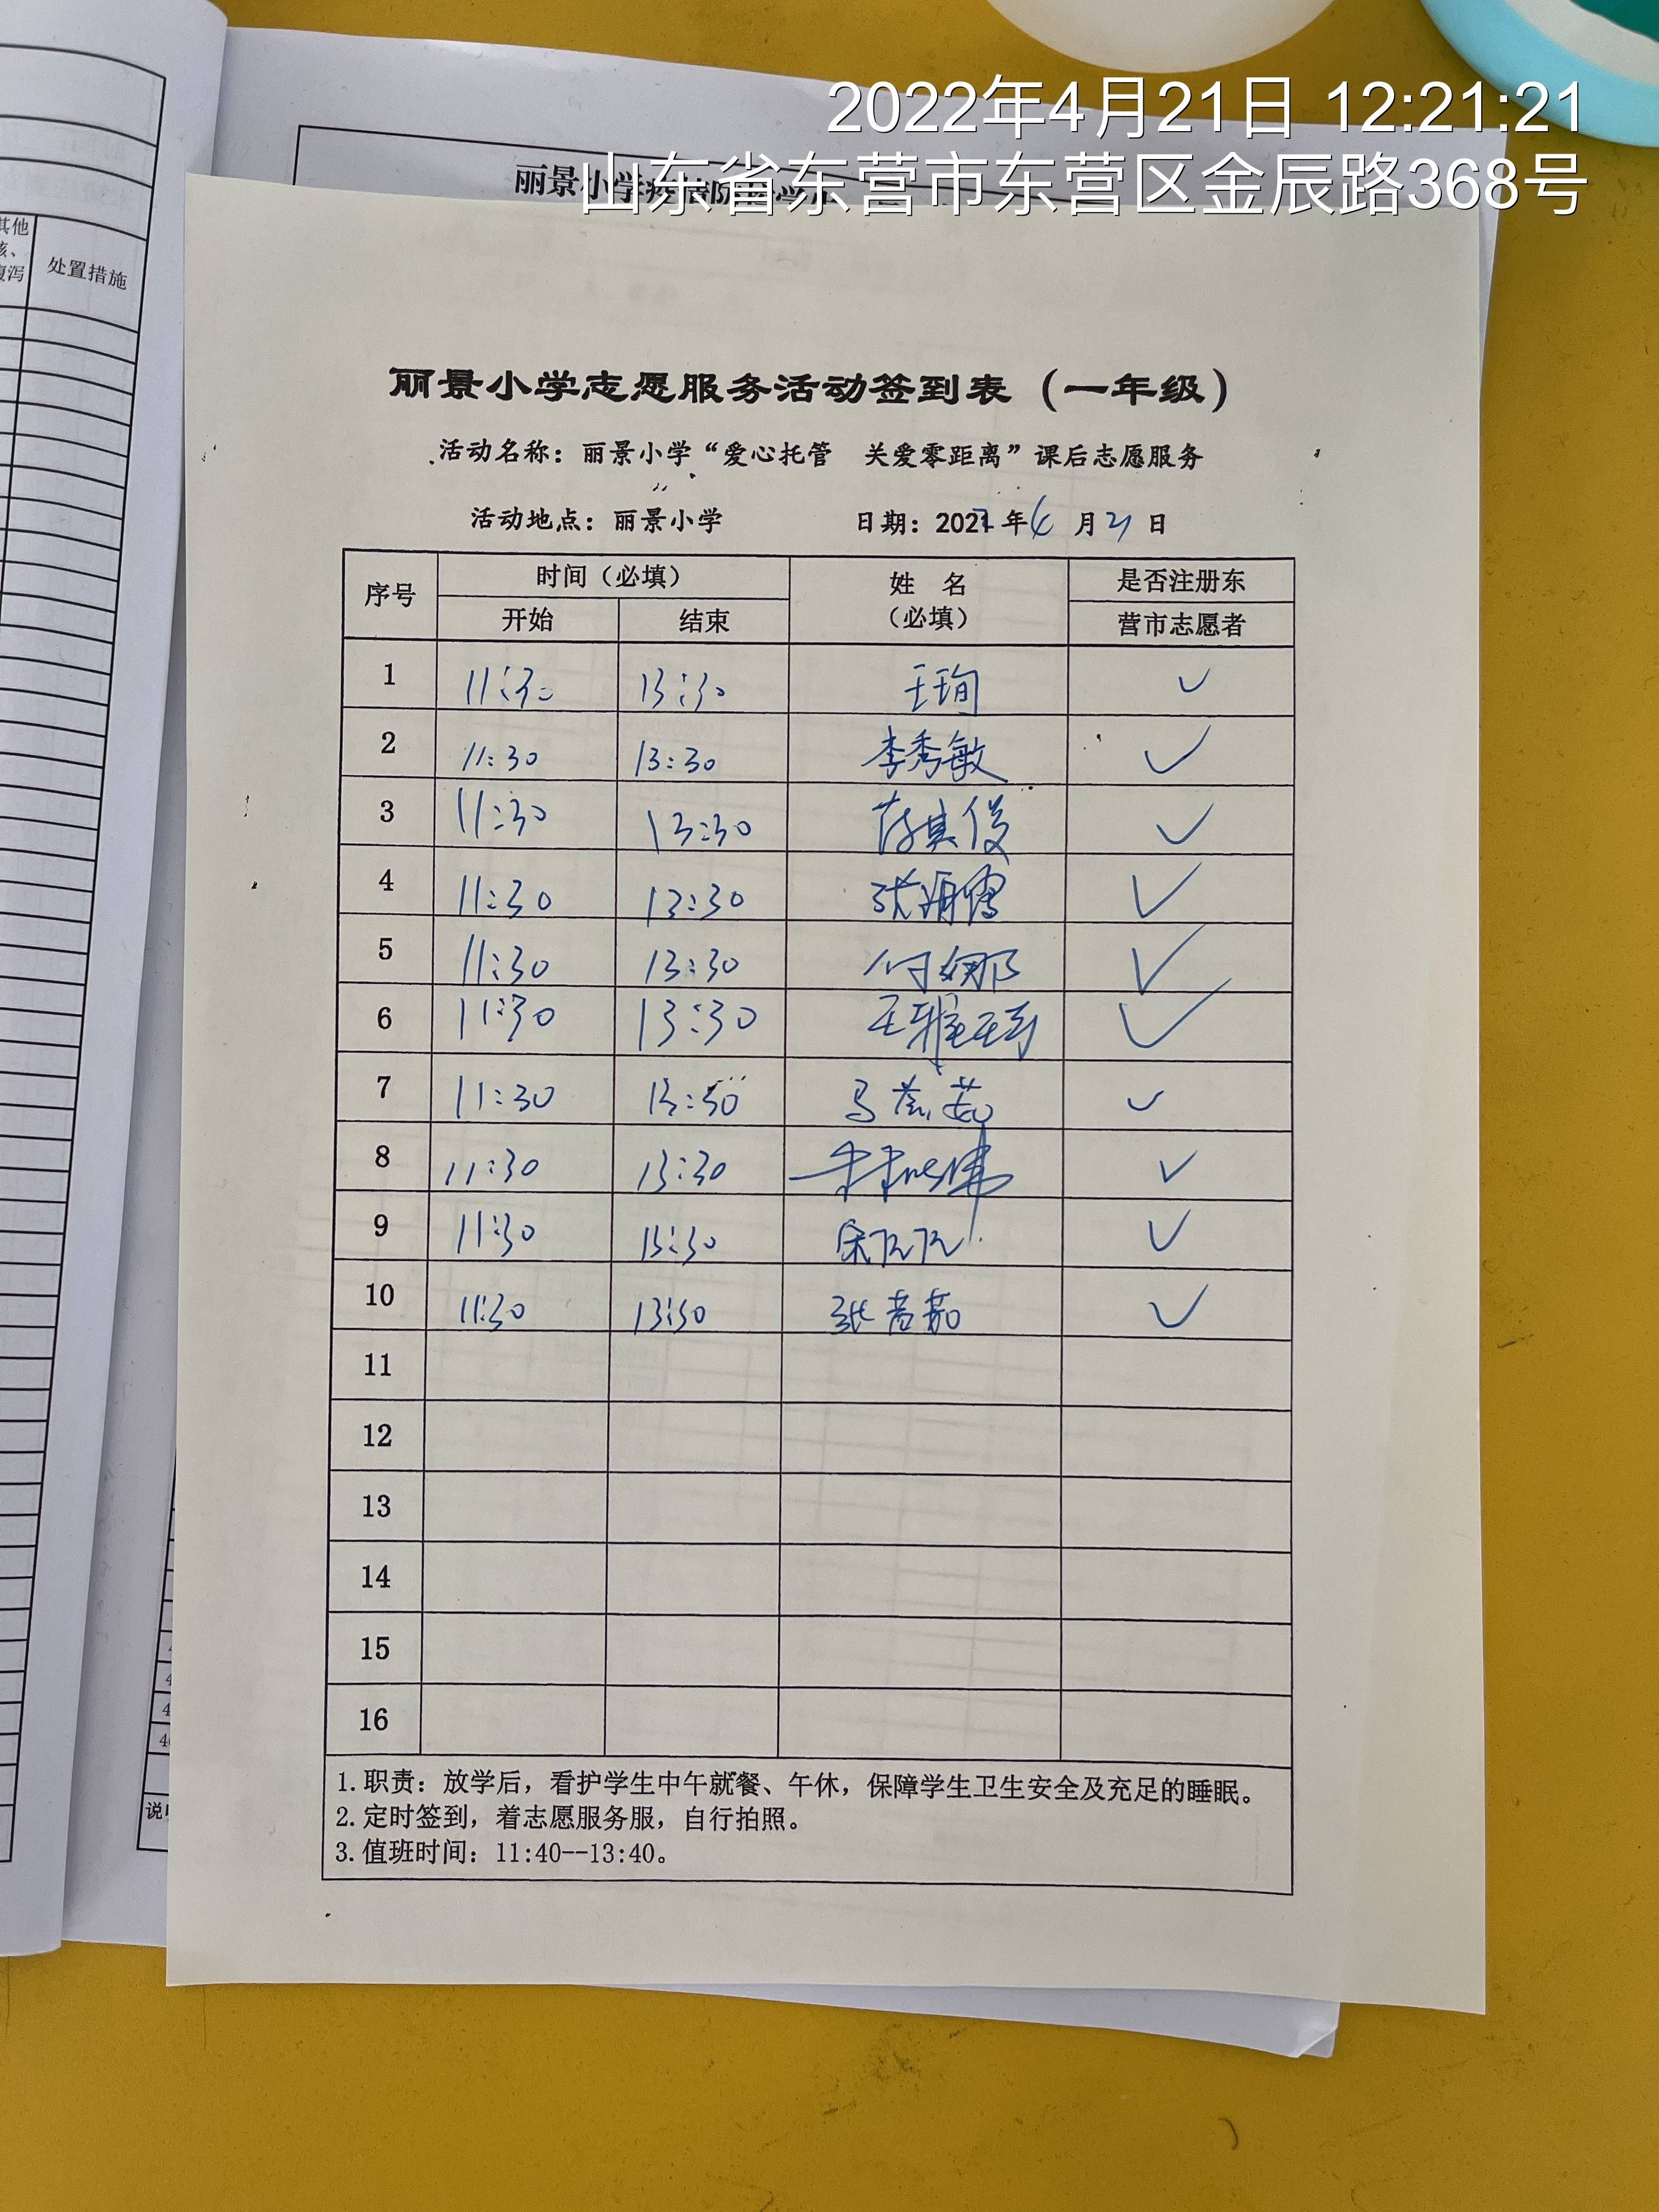 2022年4月21日 12:21:21
山东省东营市东营区金辰路368号
丽景小学
其他
处置措施
丽景小学志愿服务活动签到表（一年级）
活动名称：丽景小学“爱心托管 关爱零距离”课后志愿服务
活动地点：丽景小学 日期：2022年4月21日
序号 时间（必填） 姓 名 是否注册东
开始 结束 （必填） 营市志愿者
1 11:30 13:30 王珣 ✓
2 11:30 13:30 李秀敏 ✓
3 11:30 13:30 ✓
4 11:30 13:30 ✓
5 11:30 13:30 付娜 ✓
6 11:30 13:30 ✓
7 11:30 13:30 ✓
8 11:30 13:30 ✓
9 11:30 13:30 ✓
10 11:30 13:30 ✓
11
12
13
14
15
16
1.职责：放学后，看护学生中午就餐、午休，保障学生卫生安全及充足的睡眠。
2.定时签到，着志愿服务服，自行拍照。
3.值班时间：11:40--13:40。